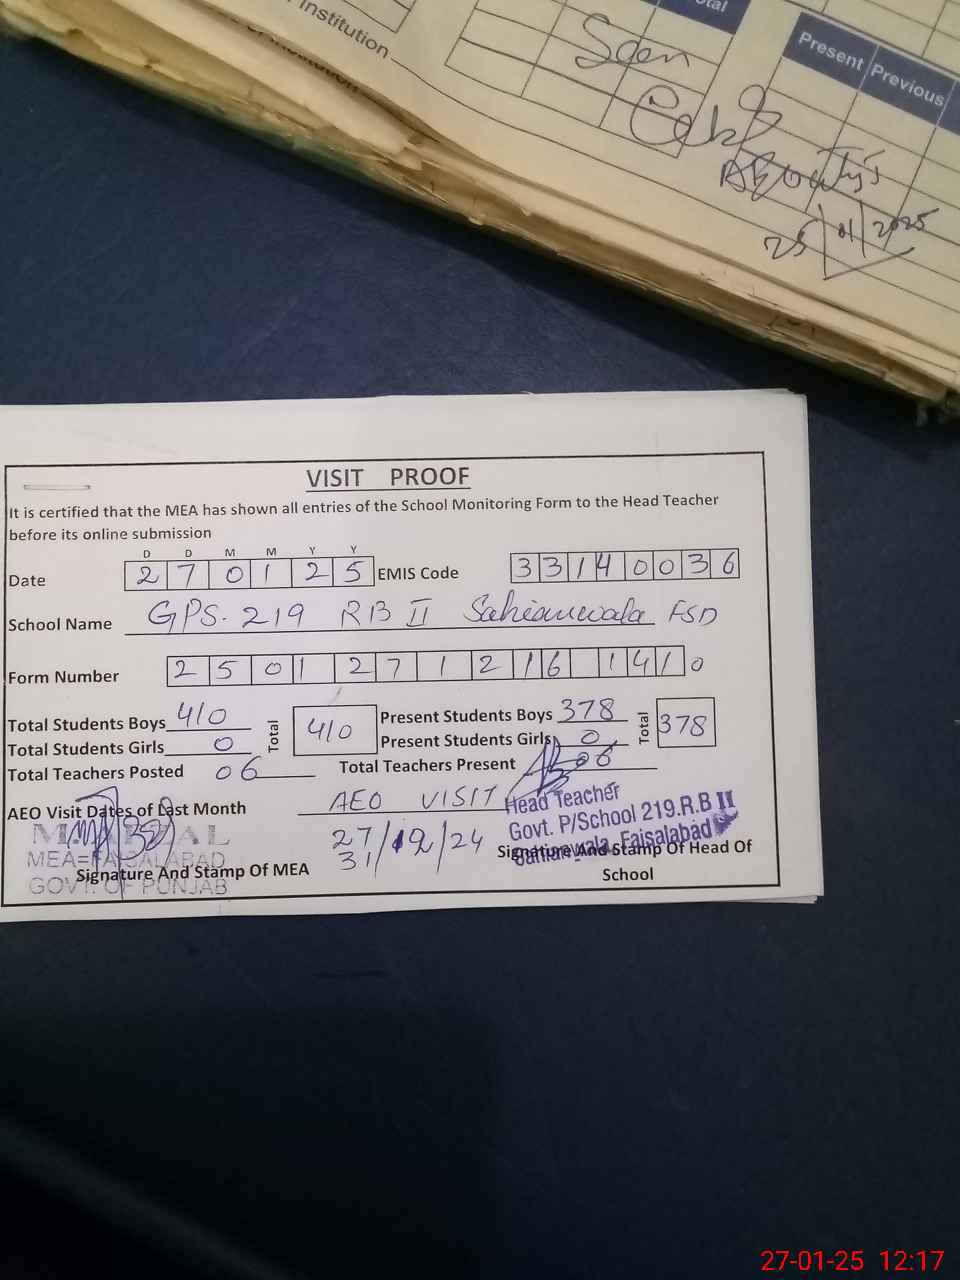 Institution
Total
Seen
Present Previous
25/01/2025
VISIT PROOF
It is certified that the MEA has shown all entries of the School Monitoring Form to the Head Teacher
before its online submission
D D M M Y Y
Date 2 7 0 1 2 5 EMIS Code 3 3 1 4 0 0 3 6
School Name GPS. 219 RB II Sahianwala FSD
Form Number 2 5 0 1 2 7 1 2 16 1 4 1 0
Total Students Boys 410 Total 410 Present Students Boys 378 Total 378
Total Students Girls 0 Present Students Girls 0
Total Teachers Posted 06 Total Teachers Present 06
AEO Visit Dates of Last Month AEO VISIT
27/12/24
31
Head Teacher
Govt. P/School 219.R.B II
Sahianwala, Faisalabad
MEA=FAISALABAD
GOVT. OF PUNJAB
Signature And Stamp Of MEA
Signature And Stamp Of Head Of
School
27-01-25 12:17